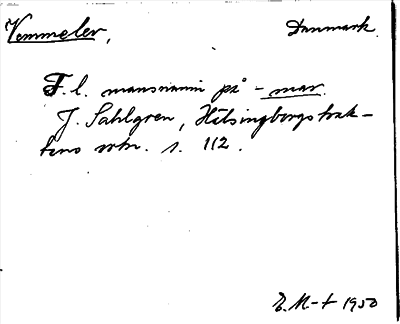 Vemmelev, Danmark.
F. l. mansnamn på - mar.
J. Sahlgren, Hälsingborgstrak-
tens ortn. s. 112.
E. M-t 1950